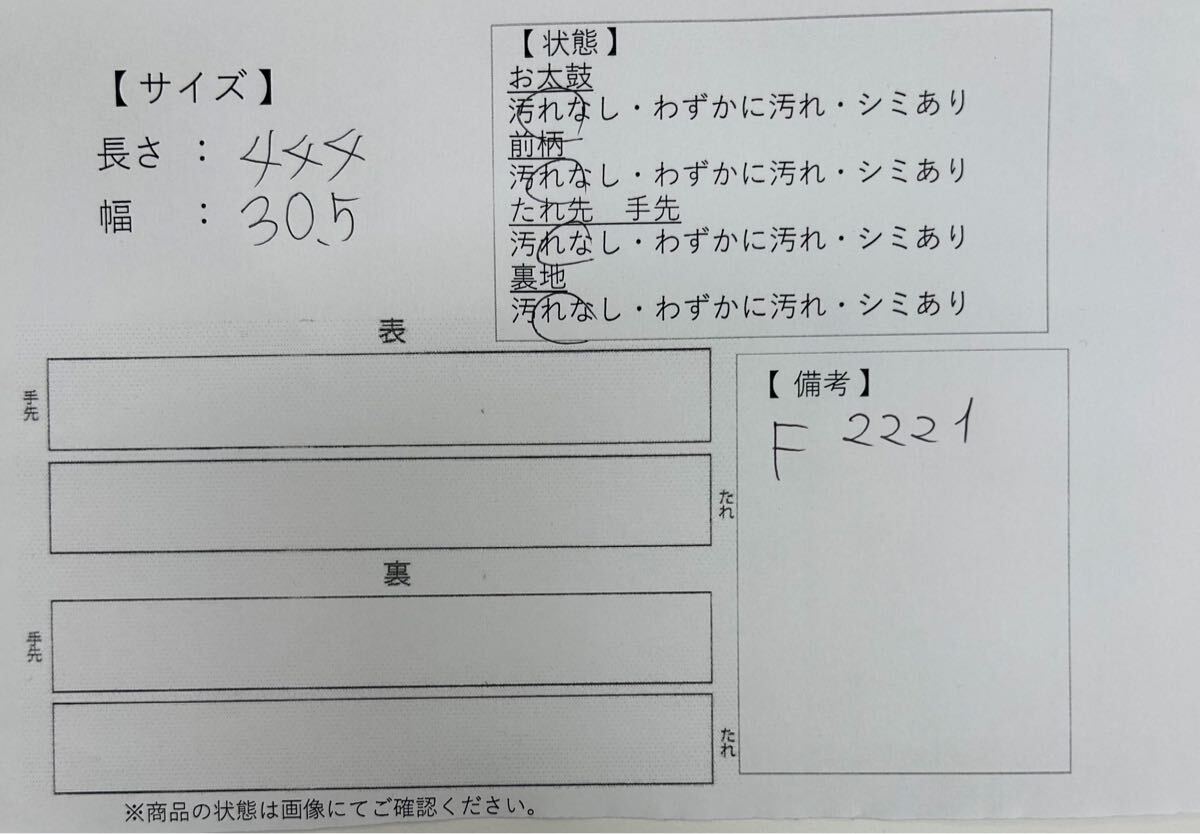 【サイズ】
長さ : 444
幅 : 30.5
【状態】
お太鼓
汚れなし・わずかに汚れ・シミあり
前柄
汚れなし・わずかに汚れ・シミあり
たれ先 手先
汚れなし・わずかに汚れ・シミあり
裏地
汚れなし・わずかに汚れ・シミあり
表
手先
たれ
裏
手先
たれ
【備考】
F 2221
※商品の状態は画像にてご確認ください。